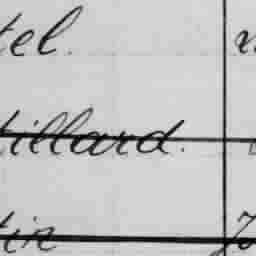 tel.
tillard.
tin